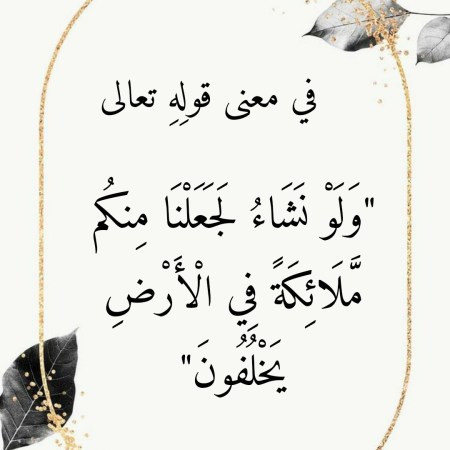 في معنى قولِهِ تعالى
"وَلَوْ نَشَاءُ لَجَعَلْنَا مِنكُم
مَّلَائِكَةً فِي الْأَرْضِ
يَخْلُفُونَ"